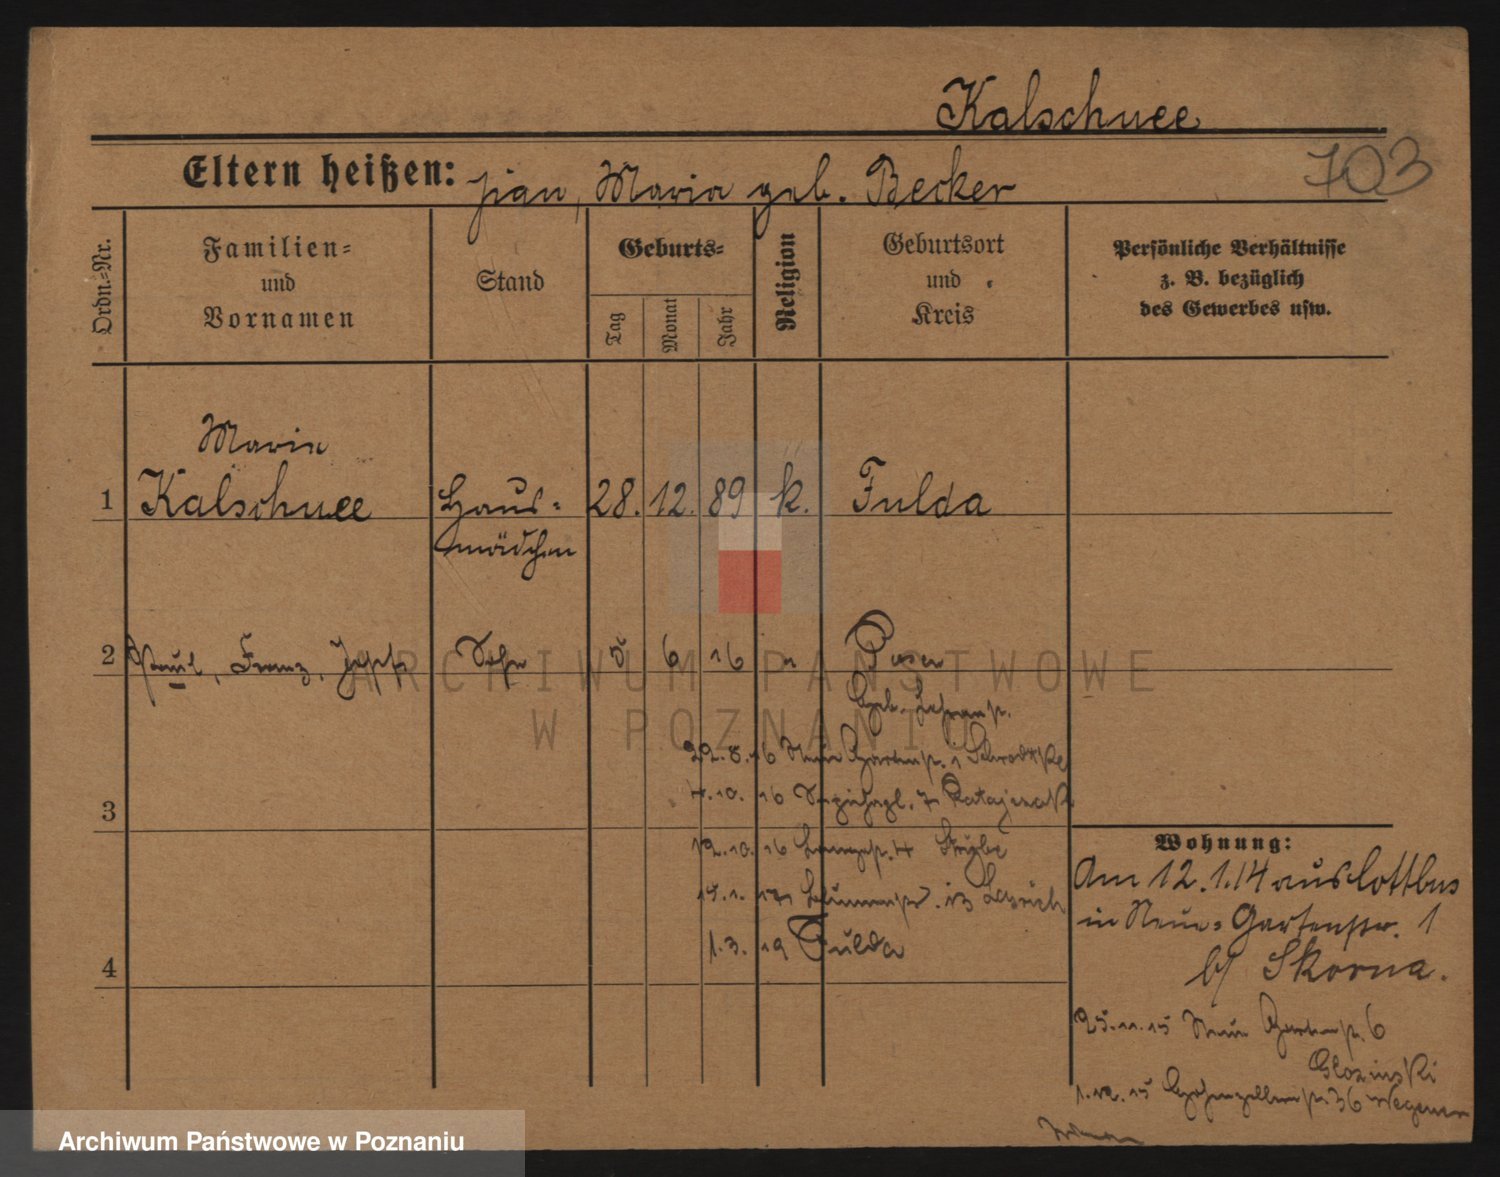 Kalschnee
703
Eltern heißen: Maria geb. Becker
Ordn.=Nr.
Familien=
und
Vornamen
Stand
Geburts=
Tag
Monat
Jahr
Religion
Geburtsort
und
Kreis
Persönliche Verhältnisse
z. B. bezüglich
des Gewerbes usw.
Maria
1 Kalschnee Haus= 28. 12. 89 k. Fulda
mädchen
2 Paul, Franz, Josef Sohn 5 6 16 " Posen
22.8.16 Neue Gartenstr. 1
7.10.16 Ratajczak
3
12.10.16
15.1.17
1.3.19 Fulda
4
Wohnung:
Am 12.1.14 aus Cottbus
in Neue=Gartenstr. 1
b/ Skorna.
25.11.15 Neue Gartenstr. 6
Glozinski
1.12.15 Hohenzollernstr. 36 Wegener
ARCHIWUM PAŃSTWOWE
W POZNANIU
Archiwum Państwowe w Poznaniu